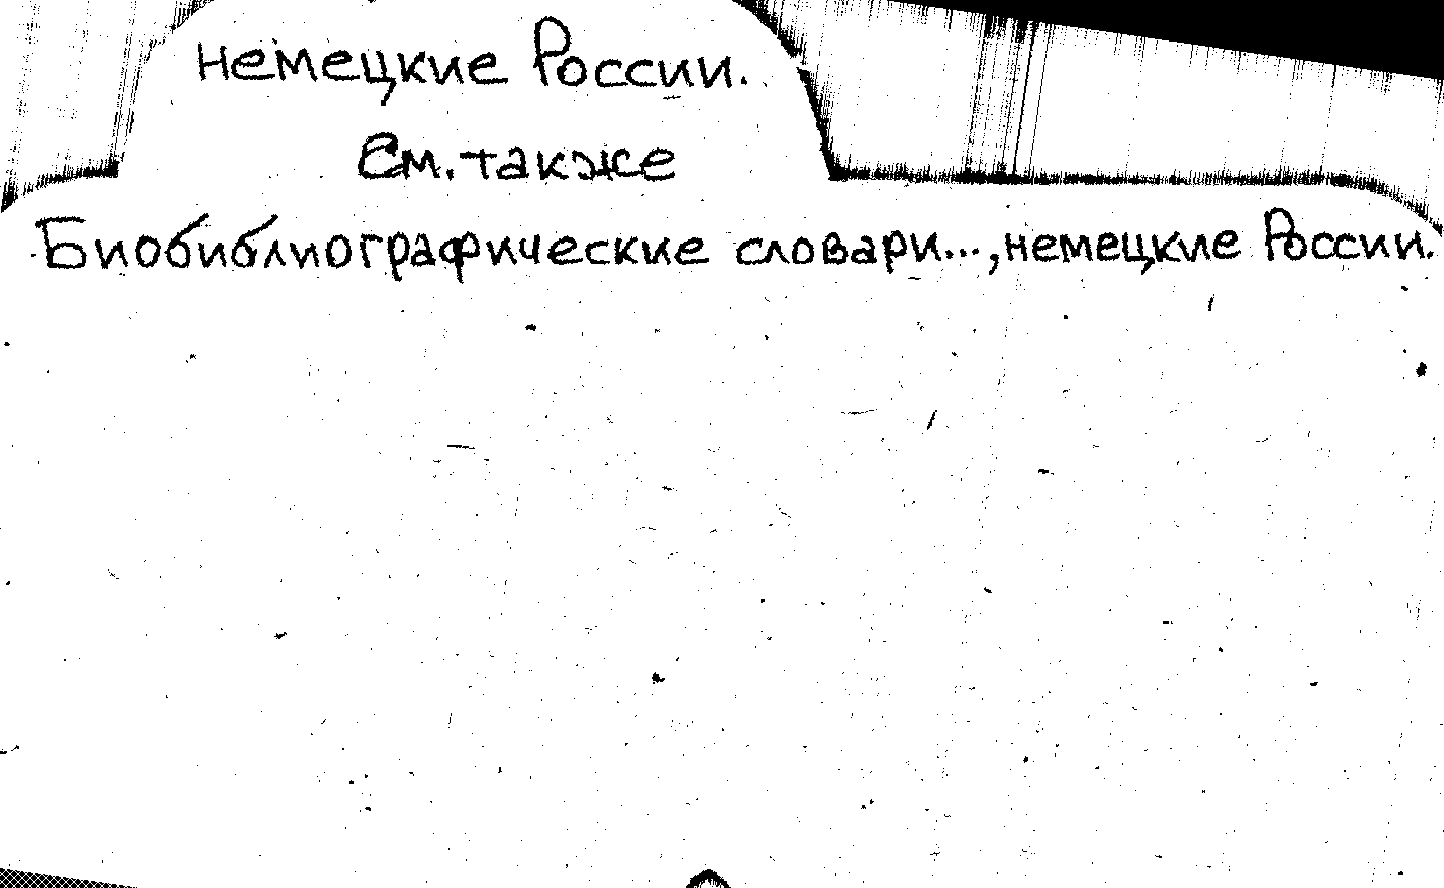 немецкие России.
См. также
Биобиблиографические словари..., немецкие России.